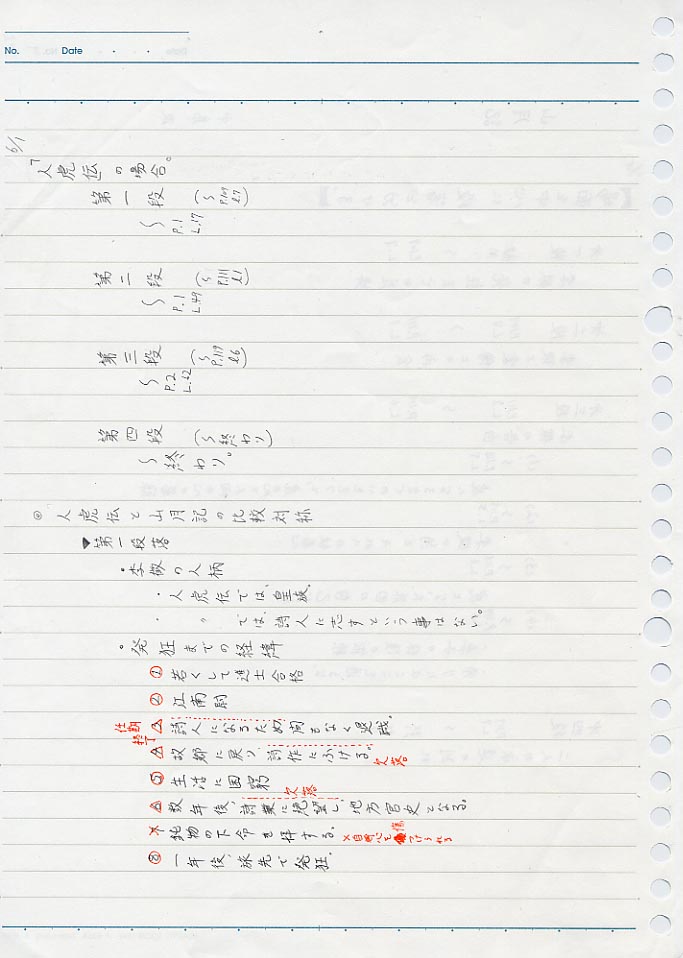 No.
Date
6/1
「人虎伝」の場合。
第一段 (〜P.109 l.7)
〜 P.1 L.17
第二段 (〜P.111 l.1)
〜 P.1 L.49
第三段 (〜P.119 l.6)
〜 P.2 L.52
第四段 (〜終わり)
〜終わり。
◎ 人虎伝と山月記の比較対称
▼第一段落
・李徴の人柄
・人虎伝では、皇族。
・ 〃 では、詩人に志すという事はない。
・発狂までの経緯
① 若くして進士合格
② 江南尉
任期終了 △3 詩人になるため間もなく退職。
△4 故郷に戻り、詩作にふける。欠落。
⑤ 生活に困窮
欠落
△6 数年後、詩業に絶望し、地方官吏となる。
×7 鈍物の下命を拝する。 ×自尊心を傷つけられる
⑧ 一年後、旅先で発狂。